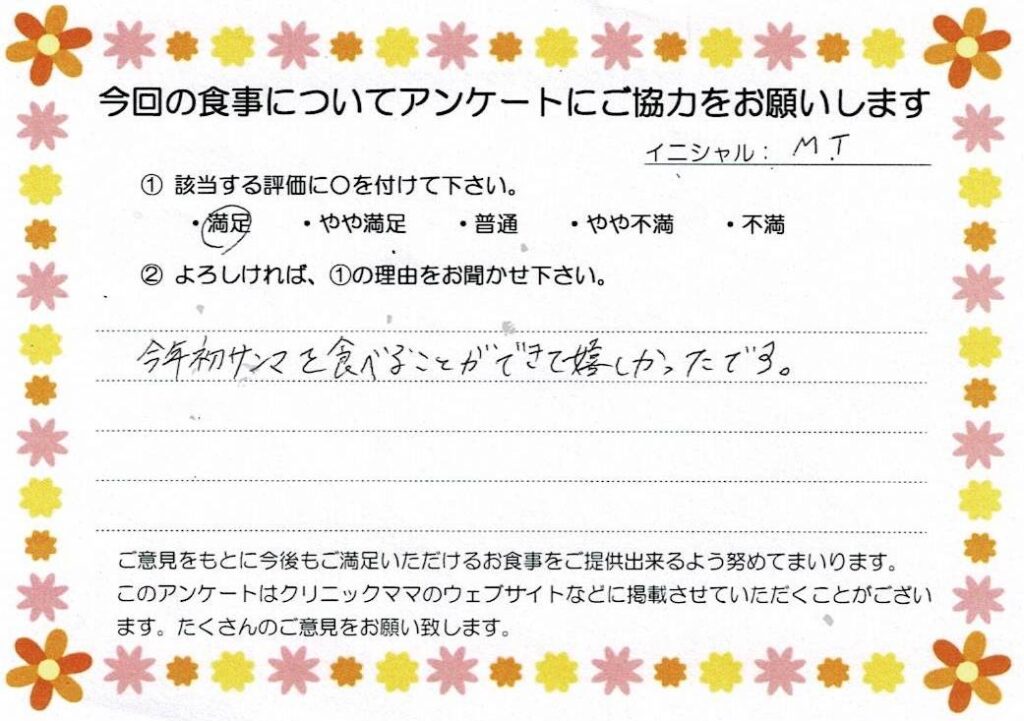 今回の食事についてアンケートにご協力をお願いします
イニシャル： M.T
① 該当する評価に〇を付けて下さい。
・満足 ・やや満足 ・普通 ・やや不満 ・不満
② よろしければ、①の理由をお聞かせ下さい。
今年初サンマを食べることができて嬉しかったです。
ご意見をもとに今後もご満足いただけるお食事をご提供出来るよう努めてまいります。
このアンケートはクリニックママのウェブサイトなどに掲載させていただくことがござい
ます。たくさんのご意見をお願い致します。